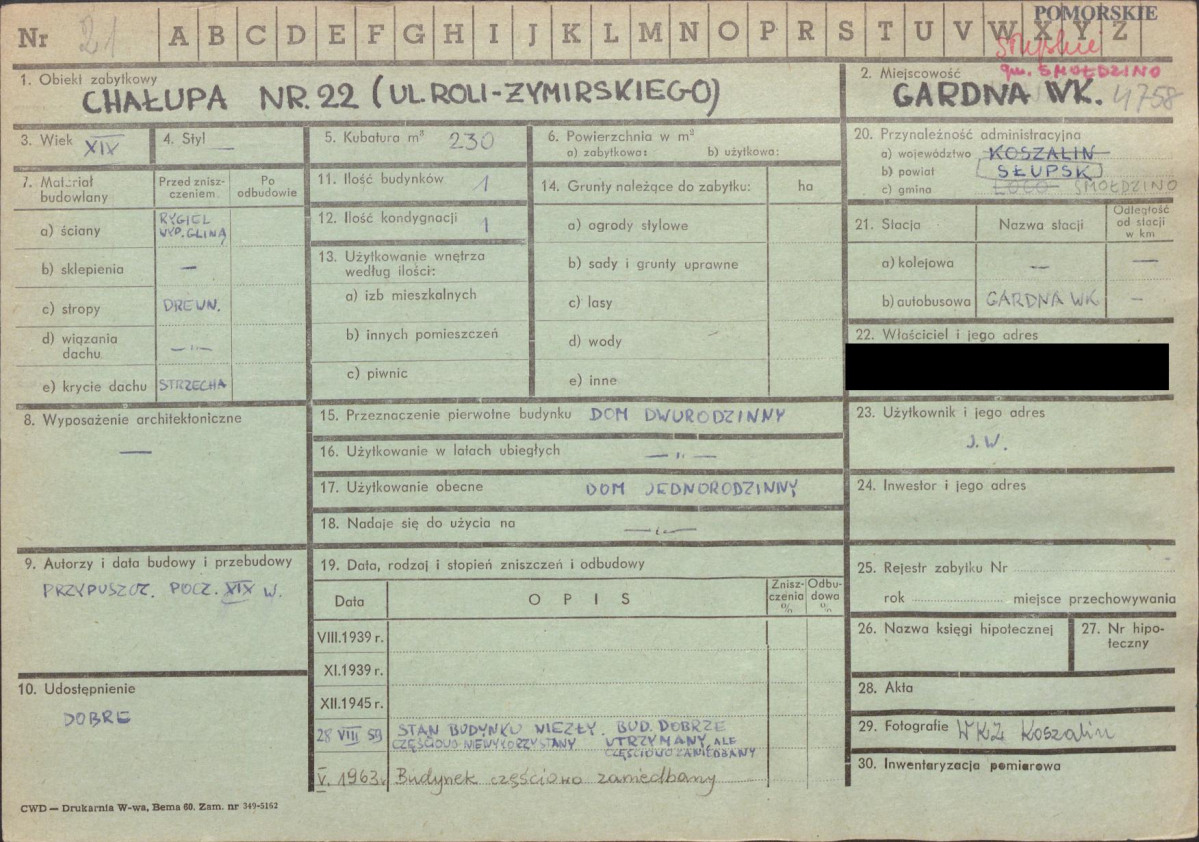 Nr 21 A B C D E F G H I J K L M N O P R S T U V W X Y Z
POMORSKIE
Słupskie
gm. SMOŁDZINO
1. Obiekt zabytkowy
CHAŁUPA NR. 22 (UL. ROLI-ZYMIRSKIEGO)
2. Miejscowość
GARDNA WK. 4758
3. Wiek XIX
4. Styl —
5. Kubatura m³ 230
6. Powierzchnia w m²
a) zabytkowa: b) użytkowa:
7. Materiał budowlany
Przed zniszczeniem.
Po odbudowie
a) ściany RYGIEL WYP. GLINĄ
b) sklepienia —
c) stropy DREWN.
d) wiązania dachu —"—
e) krycie dachu STRZECHA
8. Wyposażenie architektoniczne
—
9. Autorzy i data budowy i przebudowy
PRZYPUSZCZ. POCZ. XIX W.
10. Udostępnienie
DOBRE
11. Ilość budynków 1
12. Ilość kondygnacji 1
13. Użytkowanie wnętrza według ilości:
a) izb mieszkalnych
b) innych pomieszczeń
c) piwnic
14. Grunty należące do zabytku: ha
a) ogrody stylowe
b) sady i grunty uprawne
c) lasy
d) wody
e) inne
15. Przeznaczenie pierwotne budynku DOM DWURODZINNY
16. Użytkowanie w latach ubiegłych —"—
17. Użytkowanie obecne DOM JEDNORODZINNY
18. Nadaje się do użycia na —"—
19. Data, rodzaj i stopień zniszczeń i odbudowy
Data OPIS Zniszczenia % Odbudowa %
VIII.1939 r.
XI.1939 r.
XII.1945 r.
28 VIII 59 STAN BUDYNKU NIEZŁY. BUD. DOBRZE
CZĘŚCIOWO NIEWYKORZYSTANY UTRZYMANY, ALE
CZĘŚCIOWO ZANIEDBANY
V. 1963r. Budynek częściowo zaniedbany
20. Przynależność administracyjna
a) województwo KOSZALIN
b) powiat SŁUPSK
c) gmina LOCO SMOŁDZINO
21. Stacja Nazwa stacji Odległość od stacji w km
a) kolejowa — —
b) autobusowa GARDNA WK —
22. Właściciel i jego adres
23. Użytkownik i jego adres
J.W.
24. Inwestor i jego adres
25. Rejestr zabytku Nr
rok miejsce przechowywania
26. Nazwa księgi hipotecznej
27. Nr hipoteczny
28. Akta
29. Fotografie WKZ Koszalin
30. Inwentaryzacja pomiarowa
CWD — Drukarnia W-wa, Bema 60. Zam. nr 349-5162